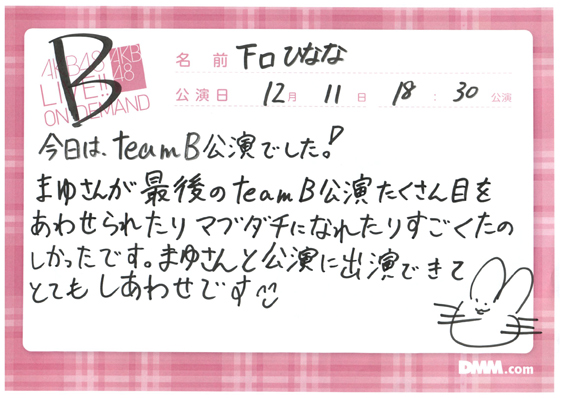 B
AKB48
LIVE!!
ON DEMAND
AKB
48
名 前 下口ひなな
公演日 12月 11日 18:30公演
今日は、teamB公演でした!
まゆさんが最後のteamB公演たくさん目を
あわせられたりマブダチになれたりすごくたの
しかったです。まゆさんと公演に出演できて
とてもしあわせです
DMM.com